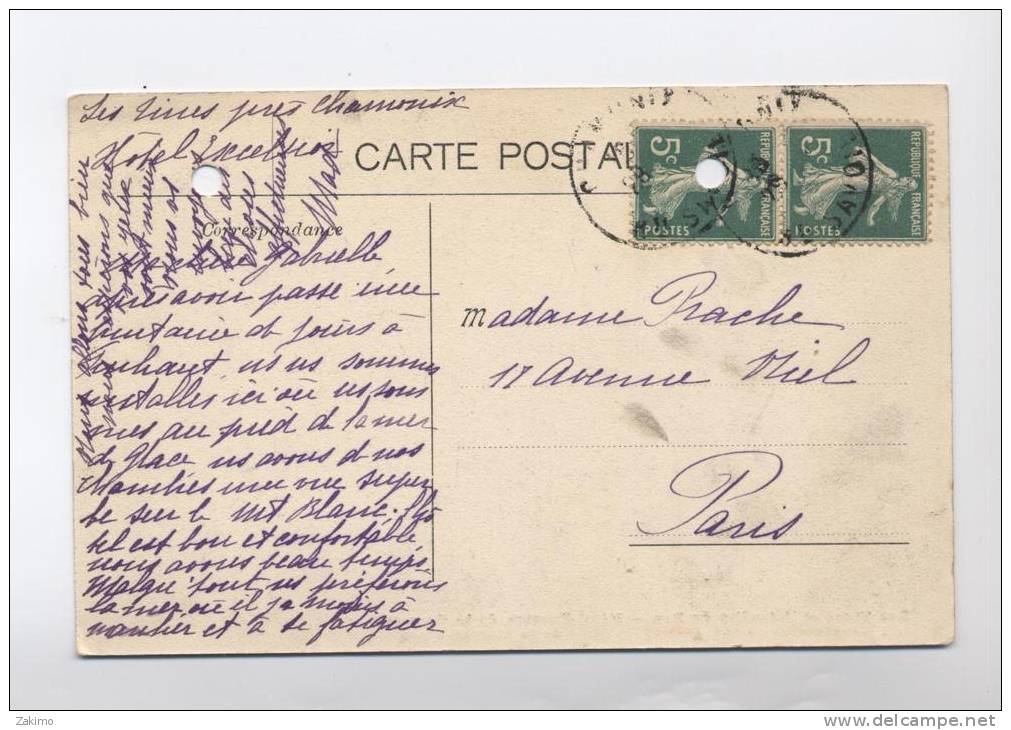 Les Tines près Chamonix
Hôtel Excelsior
CARTE POSTALE
Correspondance
Gabrielle
après avoir passé une
de jours à
ns ns sommes
installés ici où ns som
mes au pied de la mer
de glace ns avons de nos
chambres une vue super
be sur le Mt Blanc. l'hô
tel est bon et confortable
nous avons beau temps.
Malgré tout ns préférons
la mer où il y a moins à
marcher et à se fatiguer
Nous allons tous bien
que
vous
madame Rache
17 Avenue Niel
Paris
5c
REPUBLIQUE FRANÇAISE
POSTES
5c
REPUBLIQUE FRANÇAISE
POSTES
Zakimo
www.delcampe.net